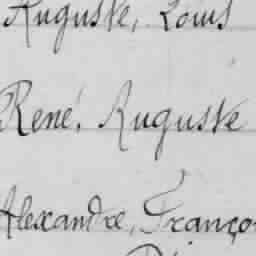 Auguste, Louis
René, Auguste
Alexandre, Franço